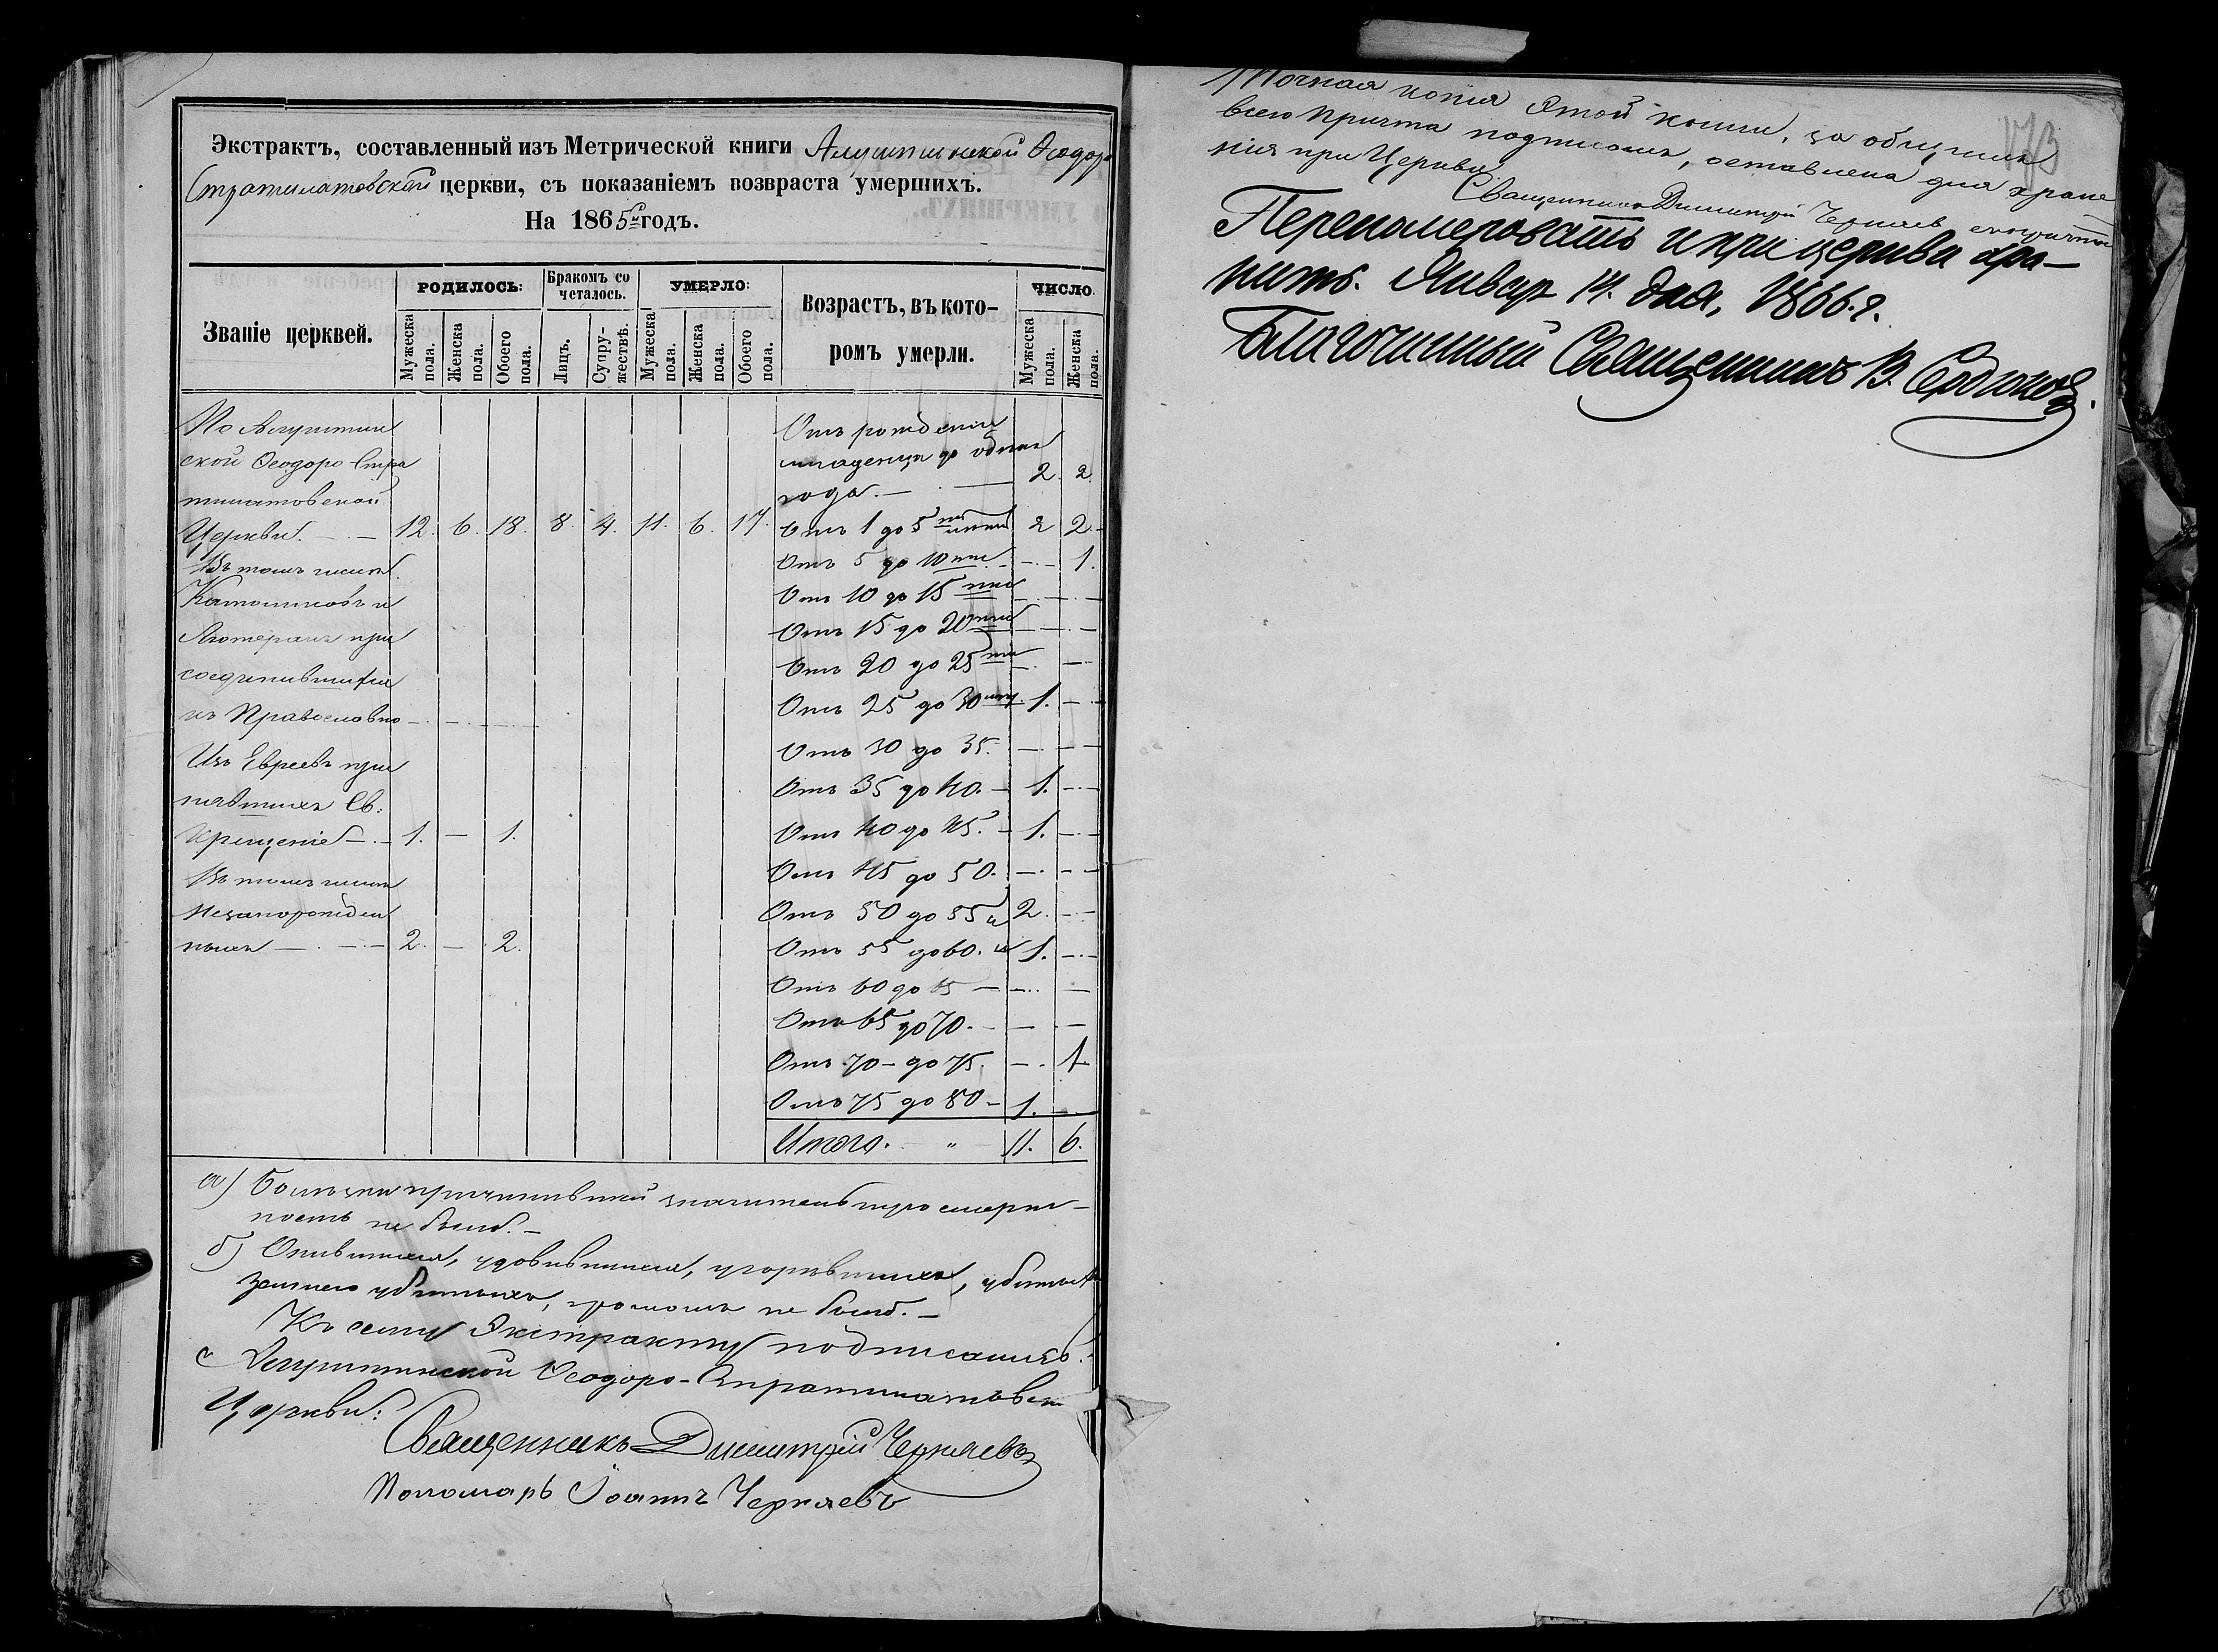 Экстрактъ, составленный изъ Метрической книги Алуштинской Ѳеодоро
Стратилатовской церкви, съ показаніемъ возвраста умершихъ.
На 1865й годъ.
Званіе церквей.
РОДИЛОСЬ:
Мужеска пола.
Женска пола.
Обоего пола.
Бракомъ со
четалось.
Лицъ.
Супру-
жествъ.
УМЕРЛО:
Мужеска пола.
Женска пола.
Обоего пола.
Возрастъ, въ кото-
ромъ умерли.
ЧИСЛО.
Мужеска пола.
Женска пола.
По Алуштин
ской Ѳеодоро Стра
тилатовской
Церкви. 12. 6. 18. 8. 4. 11. 6. 17.
Въ томъ числѣ
Католиковъ и
Лютеранъ при
соединившихся
къ Православію — — —
Изъ Евреевъ при
нявшихъ Св:
Крещеніе — 1. — 1.
Въ томъ числѣ
Незаконорожден
ныхъ — 2. — 2.
Отъ рожденія
младенца до одного
года. — 2. 2.
Отъ 1 до 5 ти лѣтъ 2 2.
Отъ 5 до 10 ти — 1.
Отъ 10 до 15 ти — —
Отъ 15 до 20 ти — —
Отъ 20 до 25 ти — —
Отъ 25 до 30 ти 1. —
Отъ 30 до 35. — —
Отъ 35 до 40. — 1. —
Отъ 40 до 45. — 1. —
Отъ 45 до 50. — —
Отъ 50 до 55 и 2. —
Отъ 55 до 60. и 1. —
Отъ 60 до 65 — — —
Отъ 65 до 70. — —
Отъ 70 — до 75. — 1
Отъ 75 до 80 — 1. —
Итого. „ 11. 6.
а) Болѣзни причинившей значительную смерт-
ность не было. —
б) Опившихся, удавившихся, угорѣвшихъ, убитыхъ
убитыхъ, громомъ не было. —
Къ сему Экстракту подписались:
Алуштинской Ѳеодоро-Стратилатовской
Церкви:
Священникъ Димитрій Черняевъ
Пономарь Іоаннъ Черняевъ
173
Точная копія этой книги, за общимъ
всего причта подписомъ, оставлена для хране
нія при Церкви.
Священникъ Димитрій Черняевъ
Перенумеровать и при церкви хра-
нить. Январ 14. дня, 1866. г.
Благочинный Священникъ В. Сердюковъ.